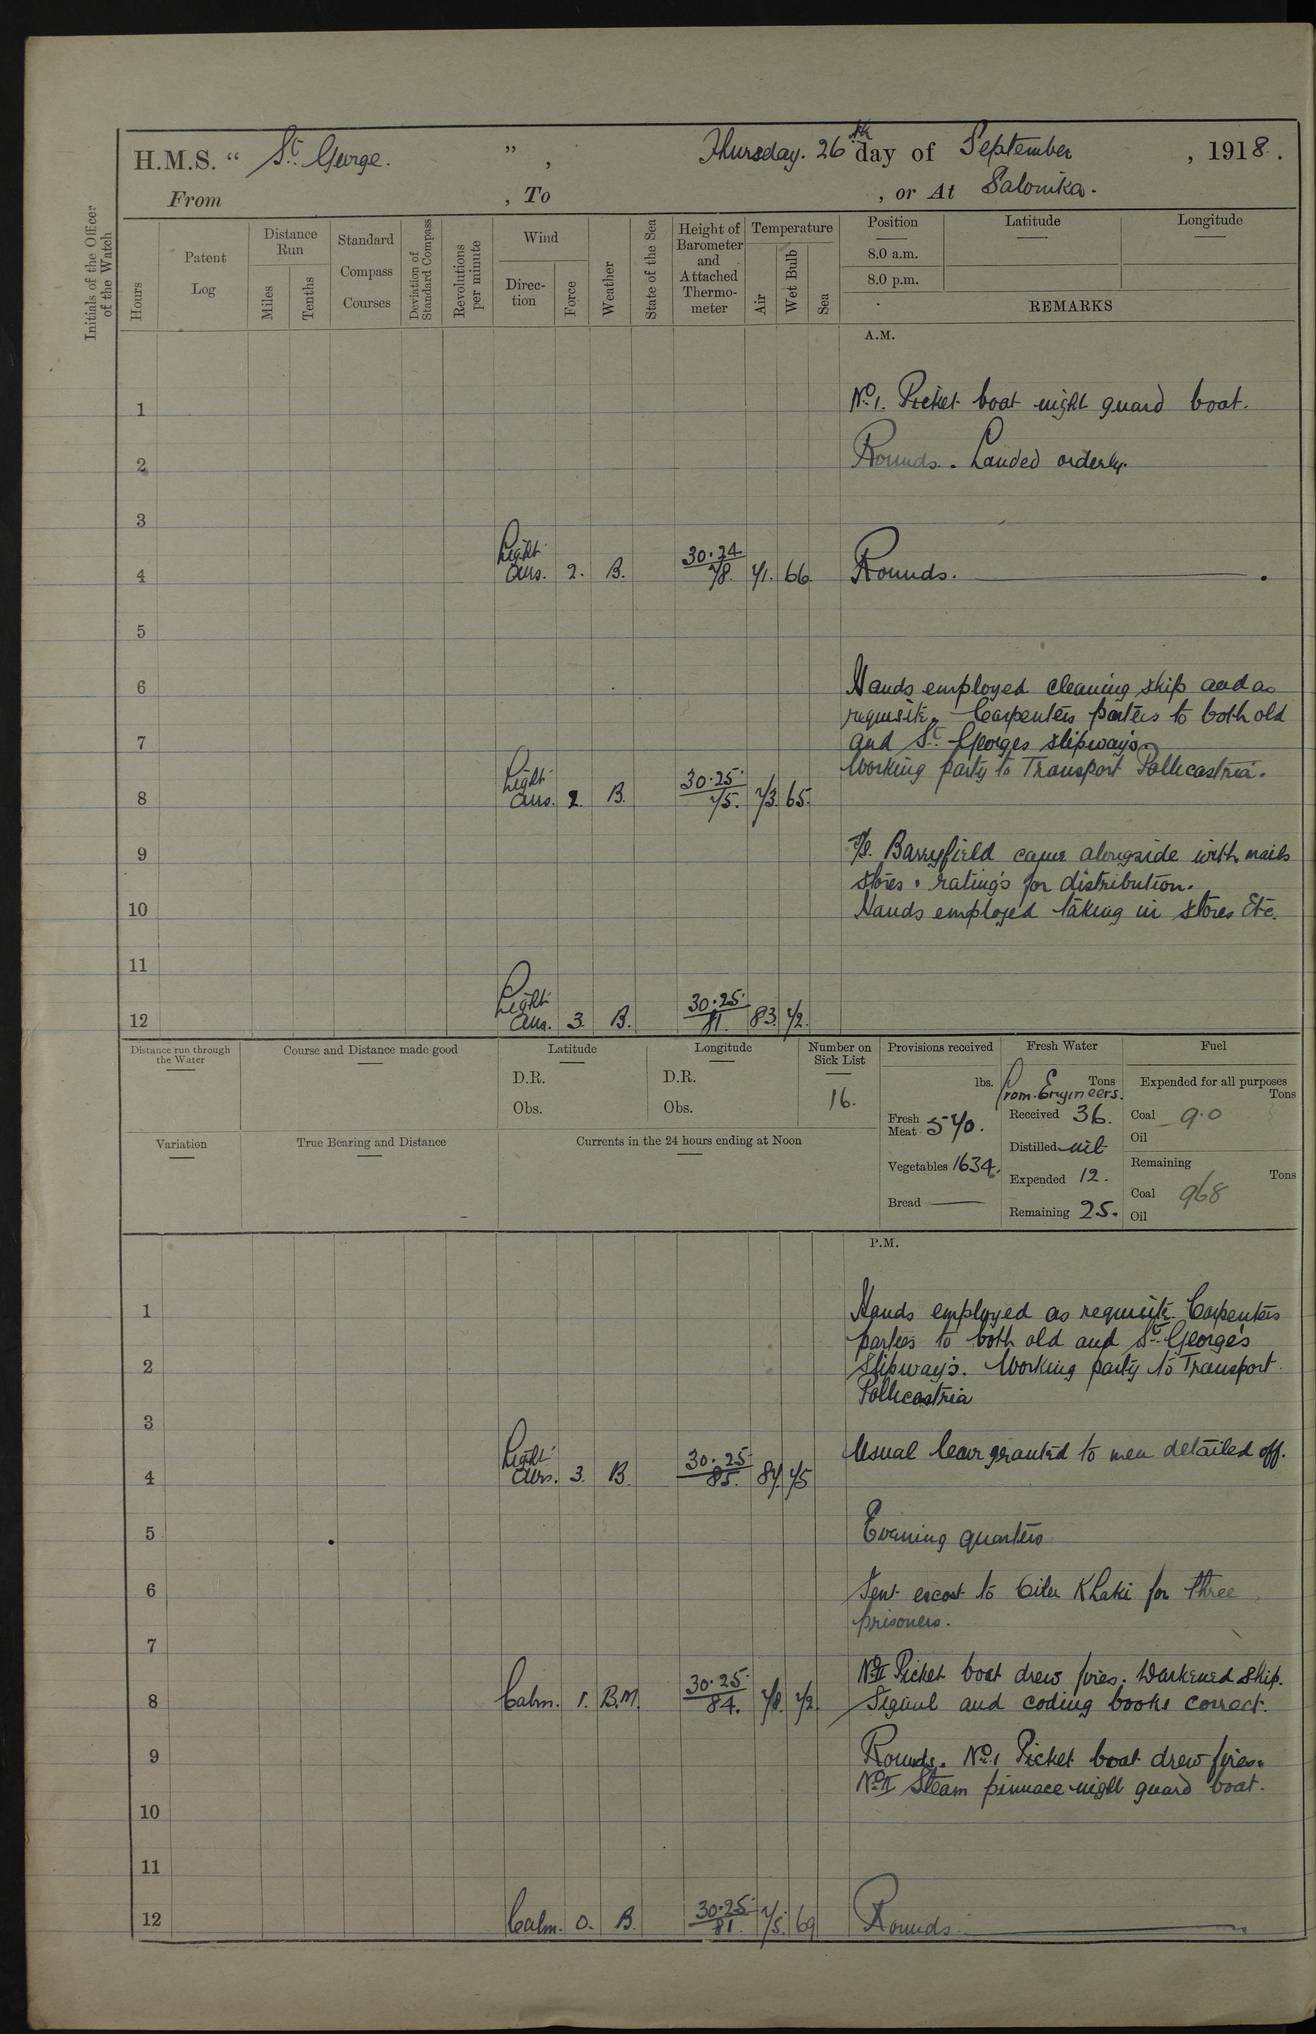 H.M.S. " St. George. " , Thursday. 26th day of September , 1918.
From , To , or At Salonika.
Initials of the Officer of the Watch
Hours
Patent Log
Distance Run
Miles
Tenths
Standard Compass Courses
Deviation of Standard Compass
Revolutions per minute
Wind
Direction
Force
Weather
State of the Sea
Height of Barometer and Attached Thermometer
Temperature
Air
Wet Bulb
Sea
Position Latitude Longitude
8.0 a.m.
8.0 p.m.
REMARKS
A.M.
1 No. 1. Picket boat night guard boat.
2 Rounds. Landed orderly.
3
4 Light airs. 2. B. 30.24 78. 71. 66. Rounds.
5
6 Hands employed cleaning ship and as
requisite. Carpenters parties to both old
7 and St. Georges slipways.
Working party to Transport Pollicastria.
8 Light airs. 2. B. 30.25. 75. 73. 65.
9 F/S. Barryfield came alongside with mails
stores & rating's for distribution.
10 Hands employed taking in stores Etc.
11
12 Light airs. 3. B. 30.25. 81. 83. 72.
Distance run through the Water
Course and Distance made good
Latitude
D.R.
Obs.
Longitude
D.R.
Obs.
Number on Sick List
16.
Variation
True Bearing and Distance
Currents in the 24 hours ending at Noon
Provisions received
lbs.
Fresh Meat 570.
Vegetables 1634.
Bread —
Fresh Water
Tons
From Engineers.
Received 36.
Distilled nil
Expended 12.
Remaining 25.
Fuel
Expended for all purposes
Tons
Coal 9.0
Oil
Remaining
Tons
Coal 968
Oil
P.M.
1 Hands employed as requisite Carpenters
parties to both old and St. George's
2 Slipway's. Working party to Transport
Pollicastria
3
Usual leave granted to men detailed off.
4 Light airs. 3. B. 30.25. 85. 87. 75
5 Evening quarters
6 Sent escort to Khaki for three
prisoners.
7
No. II Picket boat drew fires. Darkened ship.
8 Calm. 1. B.M. 30.25. 84. 78. 72. Signal and coding books correct.
9 Rounds. No. 1 Picket boat drew fires.
No. II Steam pinnace night guard boat.
10
11
12 Calm. 0. B. 30.25. 81. 75. 69 Rounds.